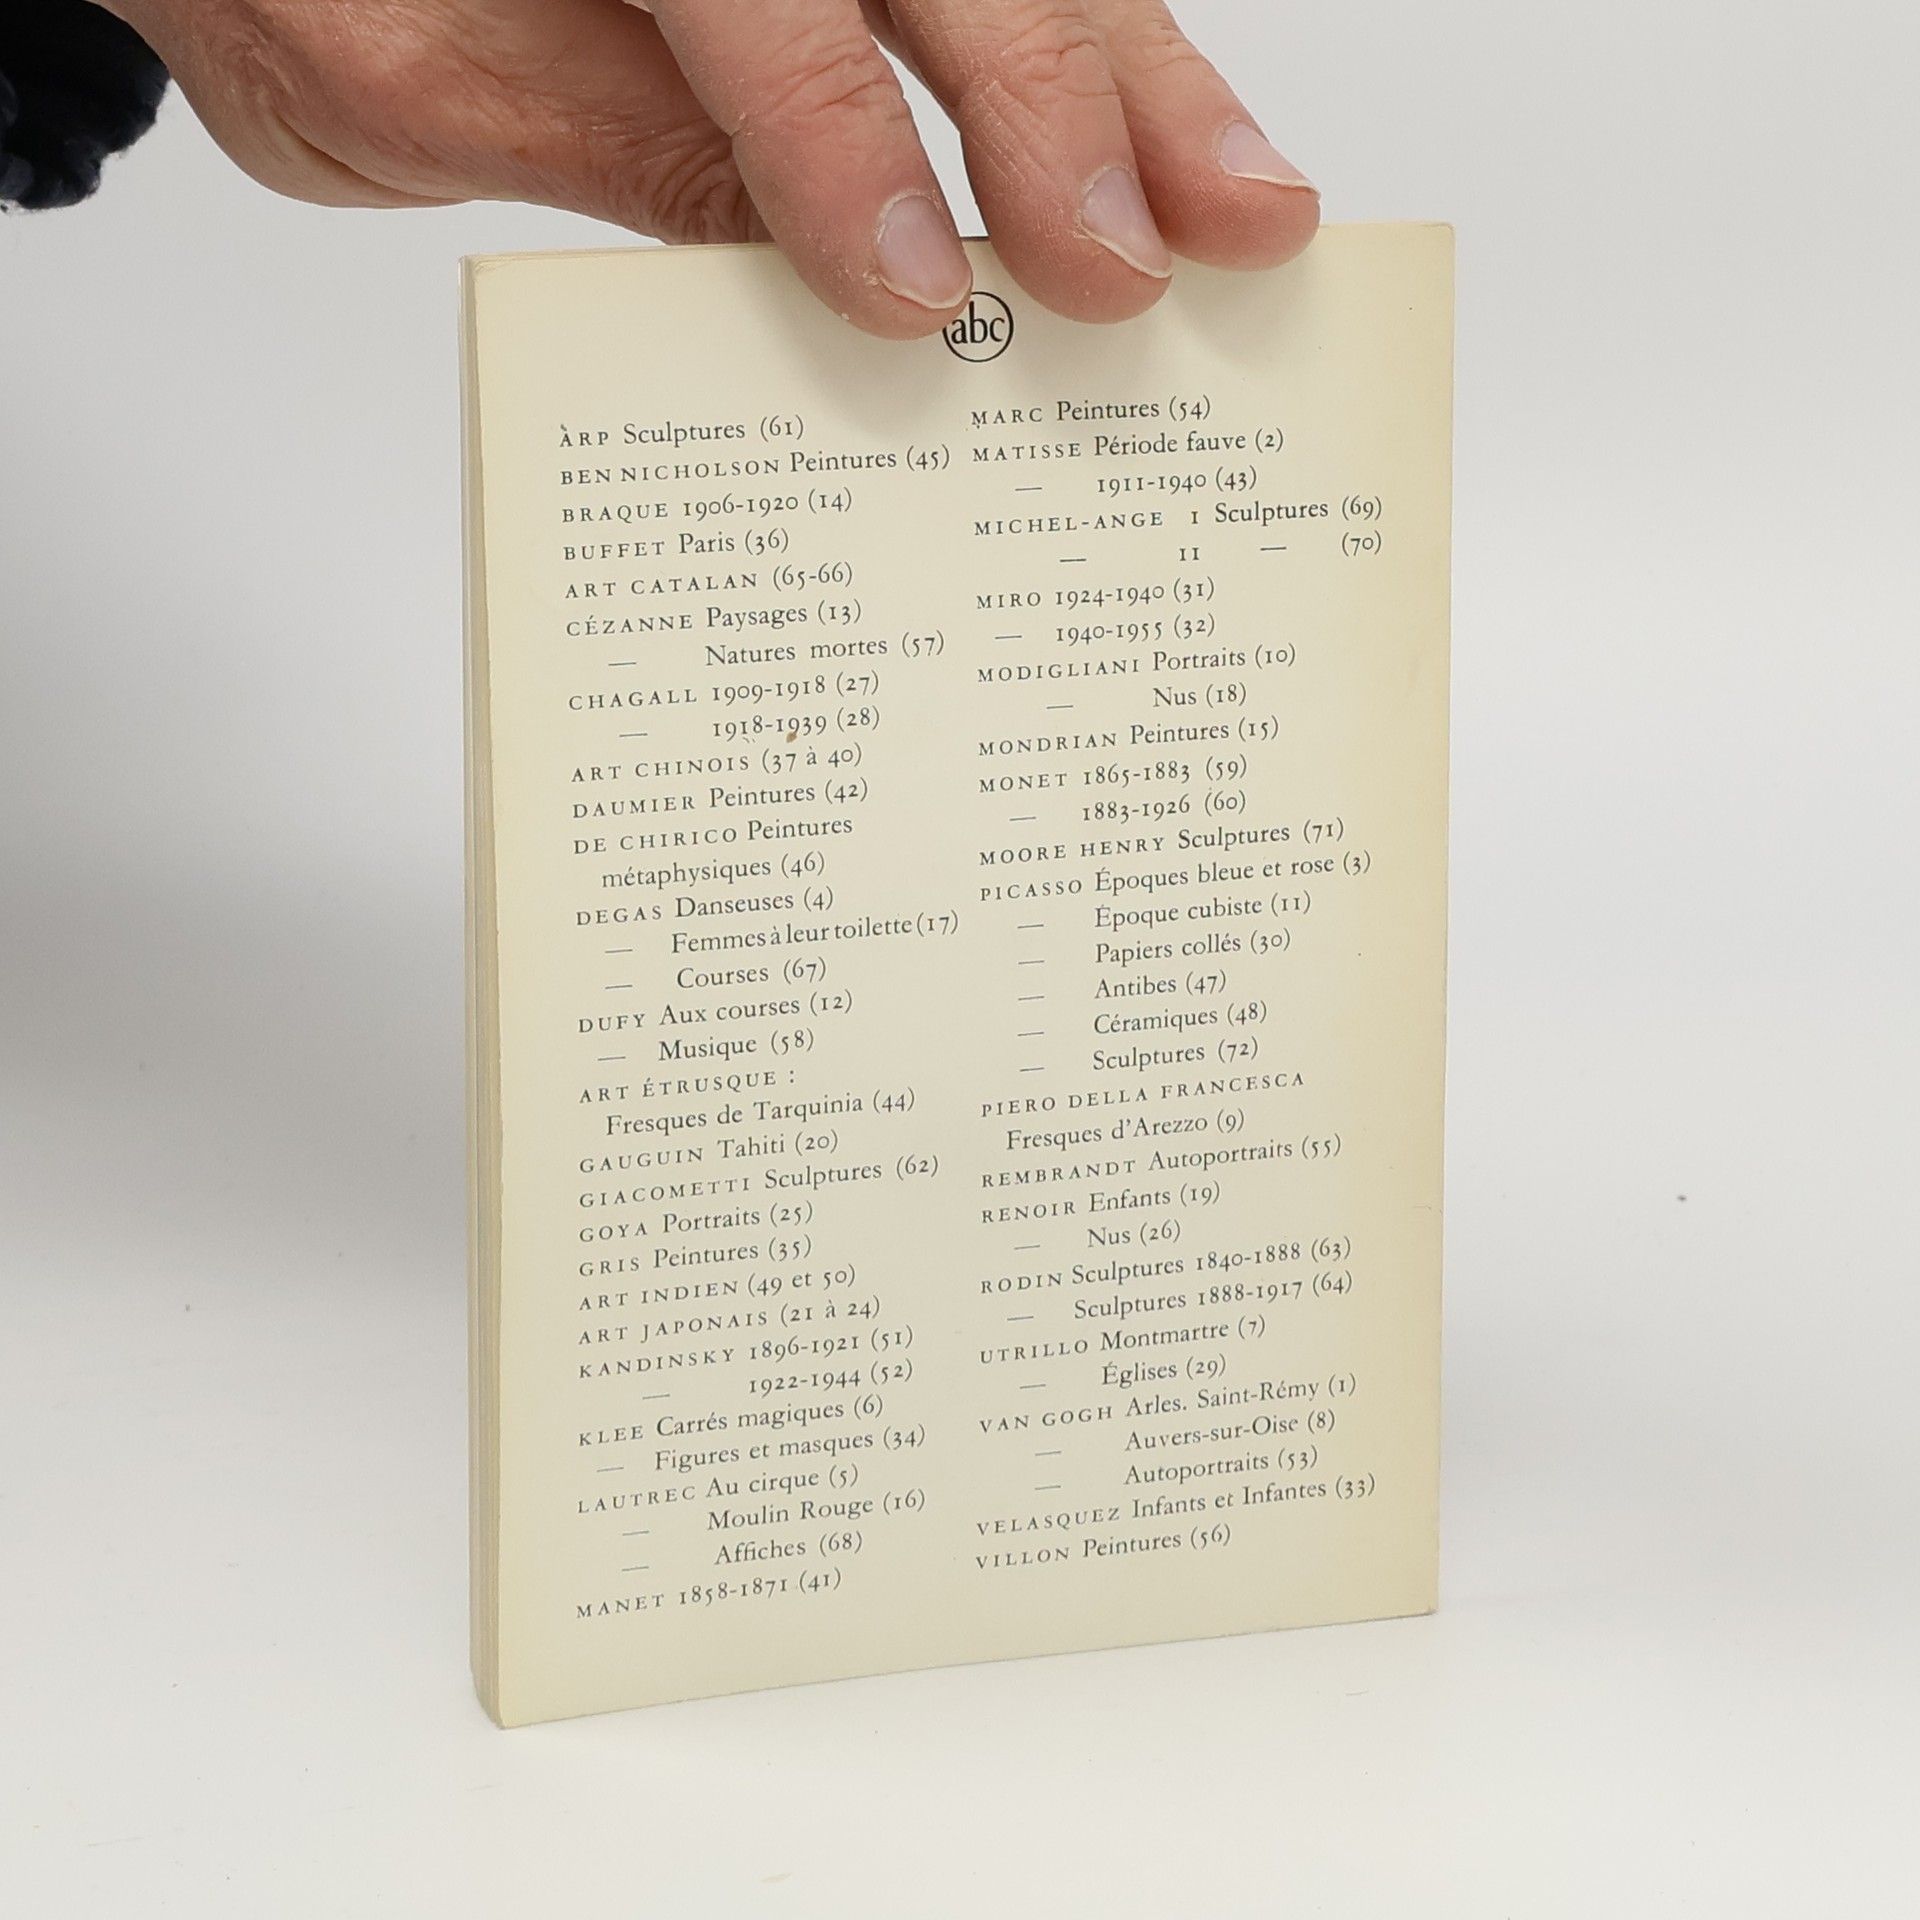 abc
ARP Sculptures (61)
BEN NICHOLSON Peintures (45)
BRAQUE 1906-1920 (14)
BUFFET Paris (36)
ART CATALAN (65-66)
CÉZANNE Paysages (13)
— Natures mortes (57)
CHAGALL 1909-1918 (27)
— 1918-1939 (28)
ART CHINOIS (37 à 40)
DAUMIER Peintures (42)
DE CHIRICO Peintures
métaphysiques (46)
DEGAS Danseuses (4)
— Femmes à leur toilette (17)
— Courses (67)
DUFY Aux courses (12)
— Musique (58)
ART ÉTRUSQUE :
Fresques de Tarquinia (44)
GAUGUIN Tahiti (20)
GIACOMETTI Sculptures (62)
GOYA Portraits (25)
GRIS Peintures (35)
ART INDIEN (49 et 50)
ART JAPONAIS (21 à 24)
KANDINSKY 1896-1921 (51)
— 1922-1944 (52)
KLEE Carrés magiques (6)
— Figures et masques (34)
LAUTREC Au cirque (5)
— Moulin Rouge (16)
— Affiches (68)
MANET 1858-1871 (41)
MARC Peintures (54)
MATISSE Période fauve (2)
— 1911-1940 (43)
MICHEL-ANGE I Sculptures (69)
— II — (70)
MIRO 1924-1940 (31)
— 1940-1955 (32)
MODIGLIANI Portraits (10)
— Nus (18)
MONDRIAN Peintures (15)
MONET 1865-1883 (59)
— 1883-1926 (60)
MOORE HENRY Sculptures (71)
PICASSO Époques bleue et rose (3)
— Époque cubiste (11)
— Papiers collés (30)
— Antibes (47)
— Céramiques (48)
— Sculptures (72)
PIERO DELLA FRANCESCA
Fresques d'Arezzo (9)
REMBRANDT Autoportraits (55)
RENOIR Enfants (19)
— Nus (26)
RODIN Sculptures 1840-1888 (63)
— Sculptures 1888-1917 (64)
UTRILLO Montmartre (7)
— Églises (29)
VAN GOGH Arles. Saint-Rémy (1)
— Auvers-sur-Oise (8)
— Autoportraits (53)
VELASQUEZ Infants et Infantes (33)
VILLON Peintures (56)